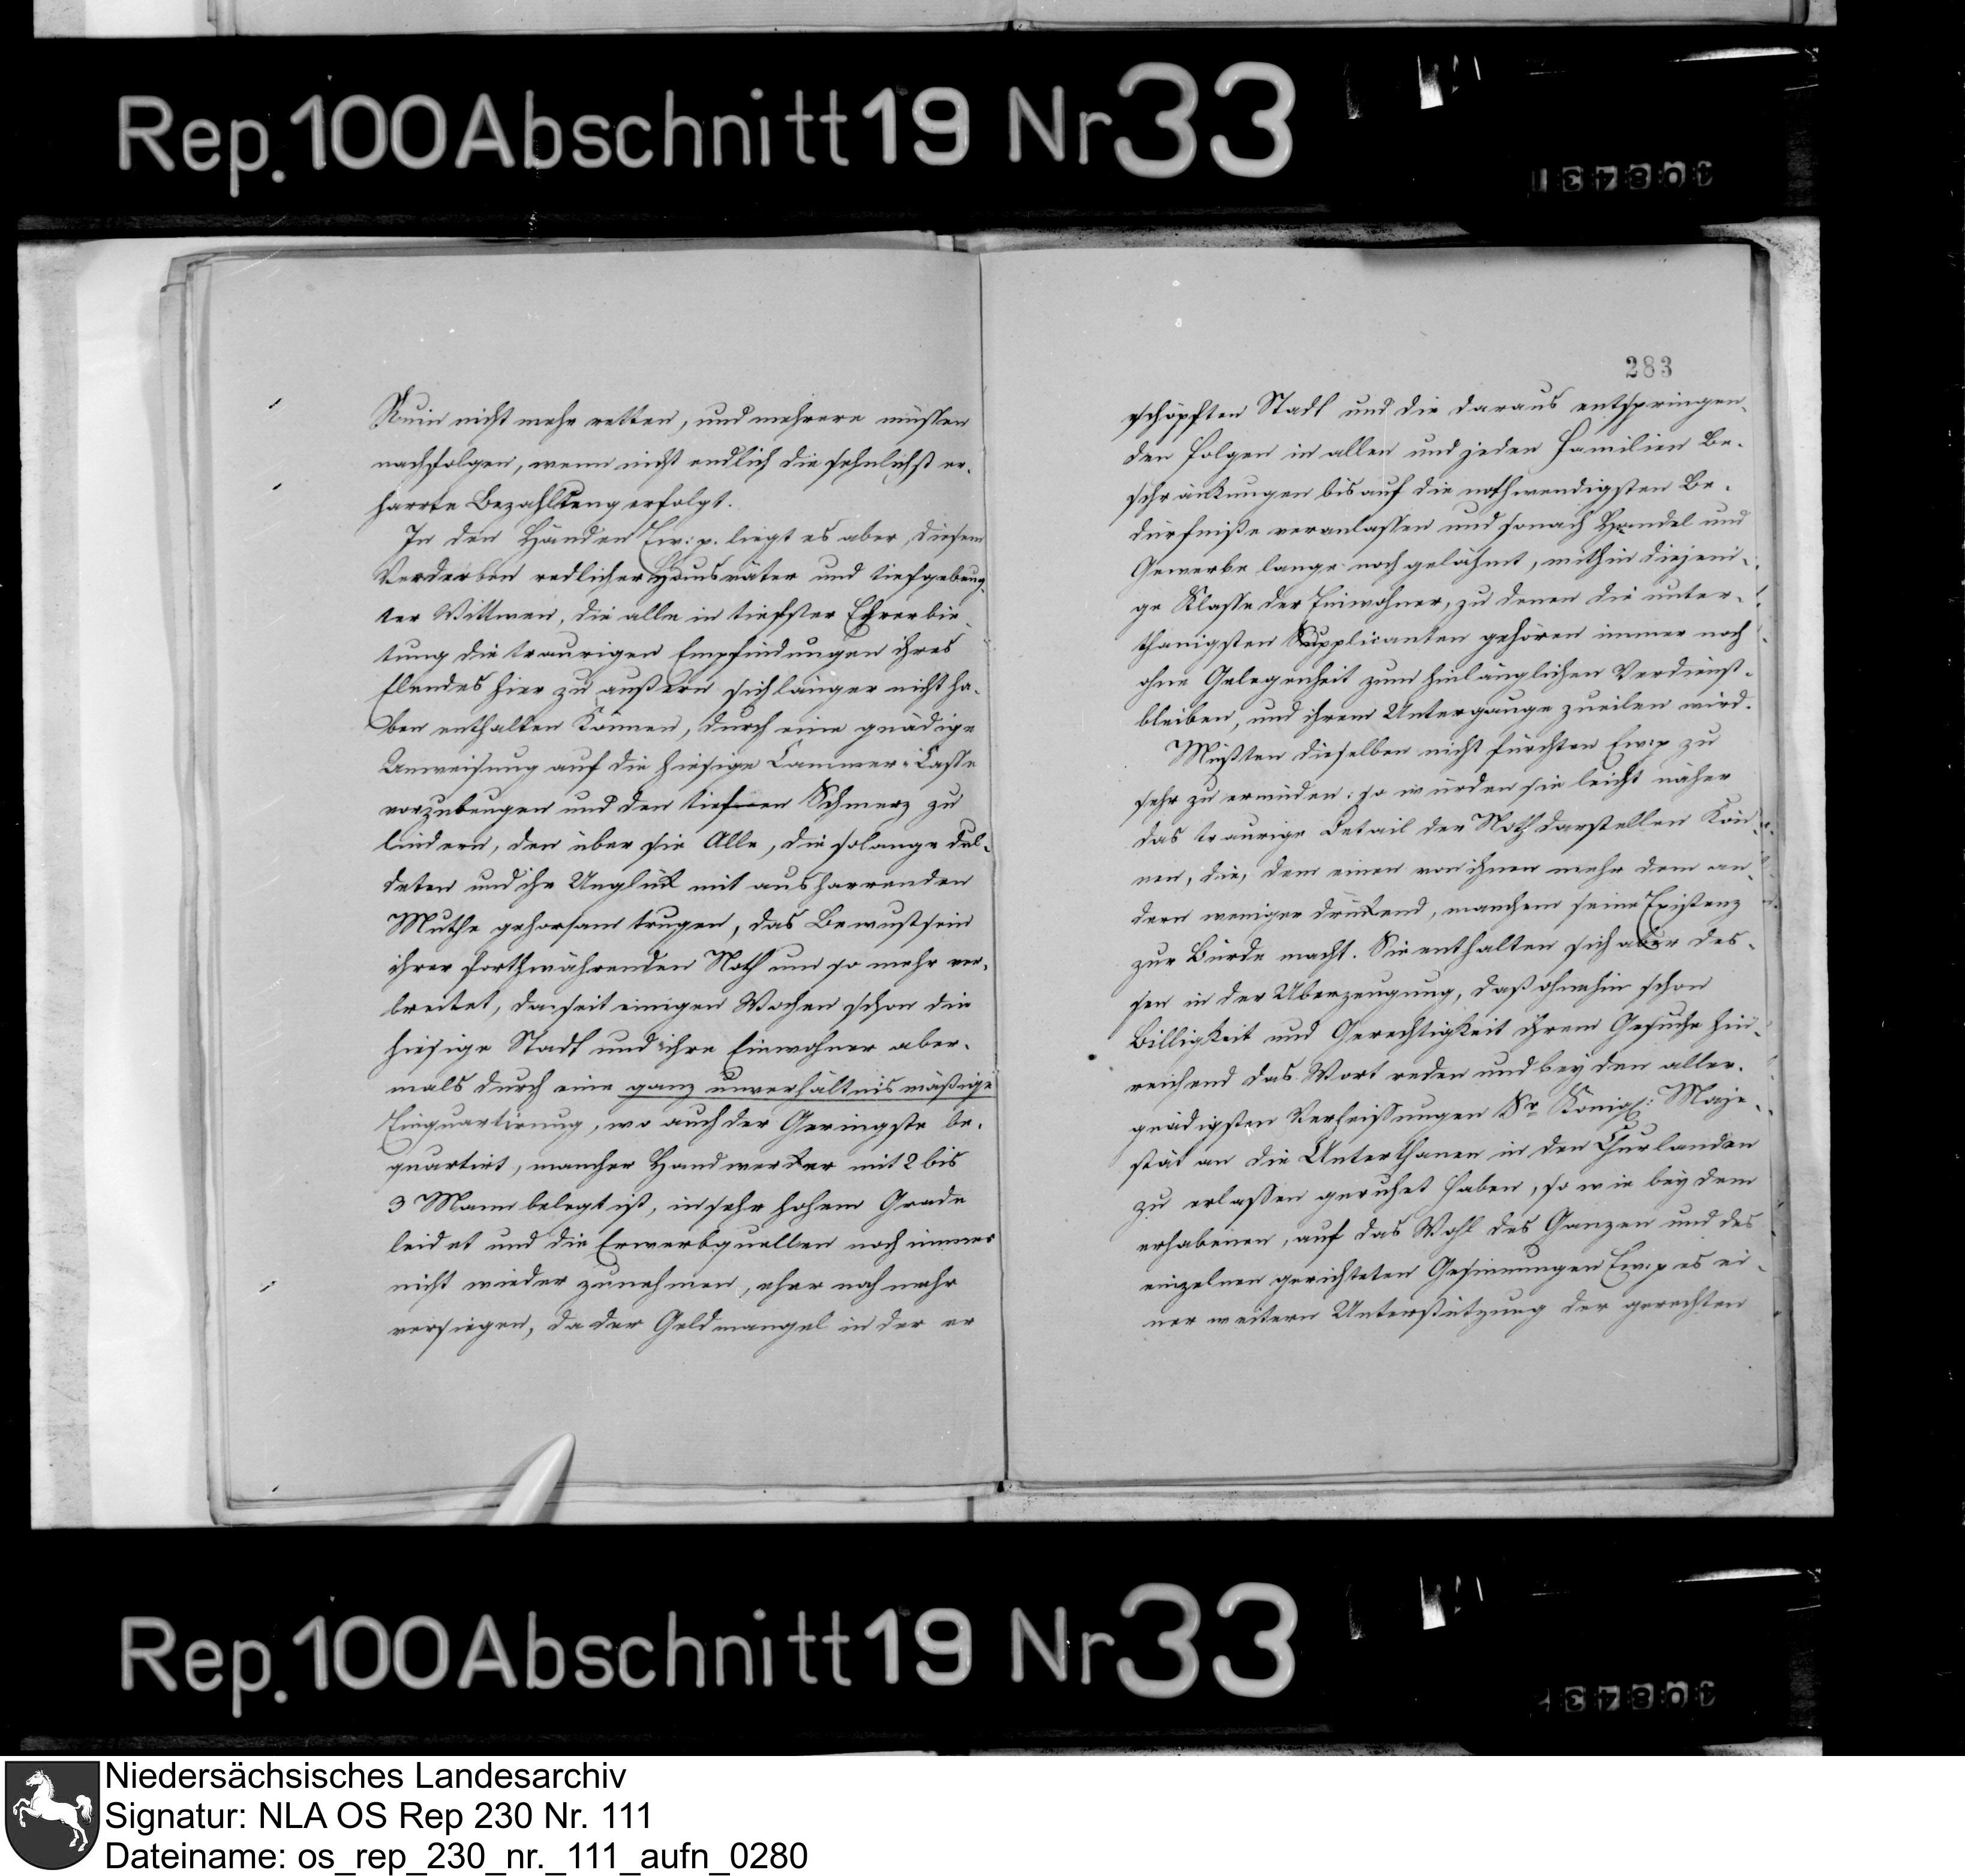 Rep. 100 Abschnitt 19 Nr 33
283
Ruin nicht mehr retten, und mehrere müssen
nachfolgen, wenn nicht endlich die sehnlichst er-
harrte Bezahlung erfolgt.
In den Händen Ew: p. liegt es aber, diesem
Verderben redlicher Hausväter und tiefgebeug-
ter Wittwen, die alle in tiefster Ehrerbie-
tung die traurigen Empfindungen ihres
Elendes hier zu äußern sich länger nicht ha-
ben enthalten können, durch eine gnädige
Anweisung auf die hiesige Cammer-Casse
vorzubeugen und den tiefen Schmerz zu
lindern, der über sie Alle, die solange dul-
deten und ihr Unglük mit ausharrenden
Muthe gehorsam trugen, das Bewustsein
ihrer forthwährenden Noth um so mehr ver-
breitet, da seit einigen Wochen schon die
hiesige Stadt und ihre Einwohner aber-
mals durch eine ganz unverhältnismäßige
Einquartirung, wo auch der Geringste be-
quartirt, mancher Handwerker mit 2 bis
3 Mann belegt ist, in sehr hohem Grade
leidet und die Erwerbquellen noch immer
nicht wieder zunehmen, eher noch mehr
versiegen, da der Geldmangel in der er
schöpften Stadt und die daraus entspringen-
den Folgen in allen und jeden Familien Be-
schränkungen bis auf die nothwendigsten Be-
dürfniße veranlassen und sonach Handel und
Gewerbe lange noch gelähmt, mithin diejeni-
ge Klasse der Einwohner, zu denen die unter-
thänigsten Supplicanten gehören immer noch
ohne Gelegenheit zum hinlänglichen Verdienst-
bleiben, und ihrem Untergange zueilen wird.
Müßten dieselben nicht fürchten Ew: p zu
sehr zu ermüden: so würden sie leicht näher
das traurige Detail der Noth darstellen kön-
nen, die, dem einen von ihnen mehr dem an-
dern weniger drükend, manchem seine Existenz
zur Bürde macht. Sie enthalten sich aber des-
sen in der Uberzeugung, daß ohnehin schon
Billigkeit und Gerechtigkeit ihrem Gesuche hin-
reichend das Wort reden und bey den aller-
gnädigsten Verheissungen Sr Königl: Maje-
stät an die Unterthanen in den Churlanden
zu erlaßen geruhet haben, so wie bey dem
erhabenen, auf das Wohl des Ganzen und des
einzelnen gerichteten Gesinnungen Ew: p es ei-
ner weitern Unterstützung der gerechten
Rep. 100 Abschnitt 19 Nr 33
Niedersächsisches Landesarchiv
Signatur: NLA OS Rep 230 Nr. 111
Dateiname: os_rep_230_nr._111_aufn_0280